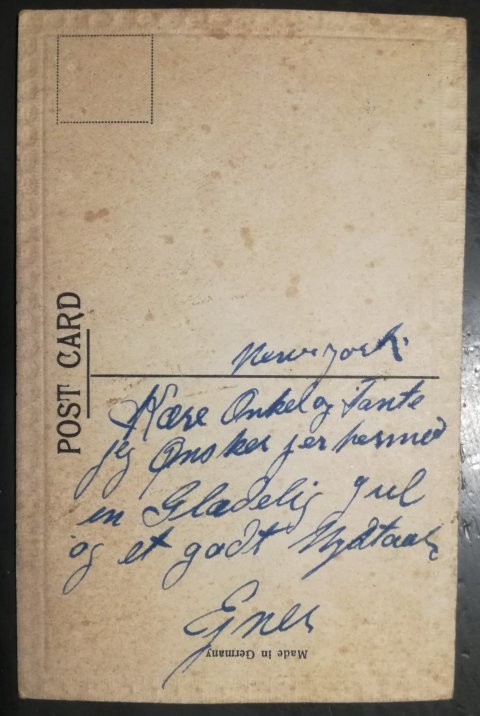 POST CARD
Newyork.
Kære Onkel og Tante
jeg Ønsker jer hermed
en Gladelig Jul
og et godt Nydtaar
Made in Germany